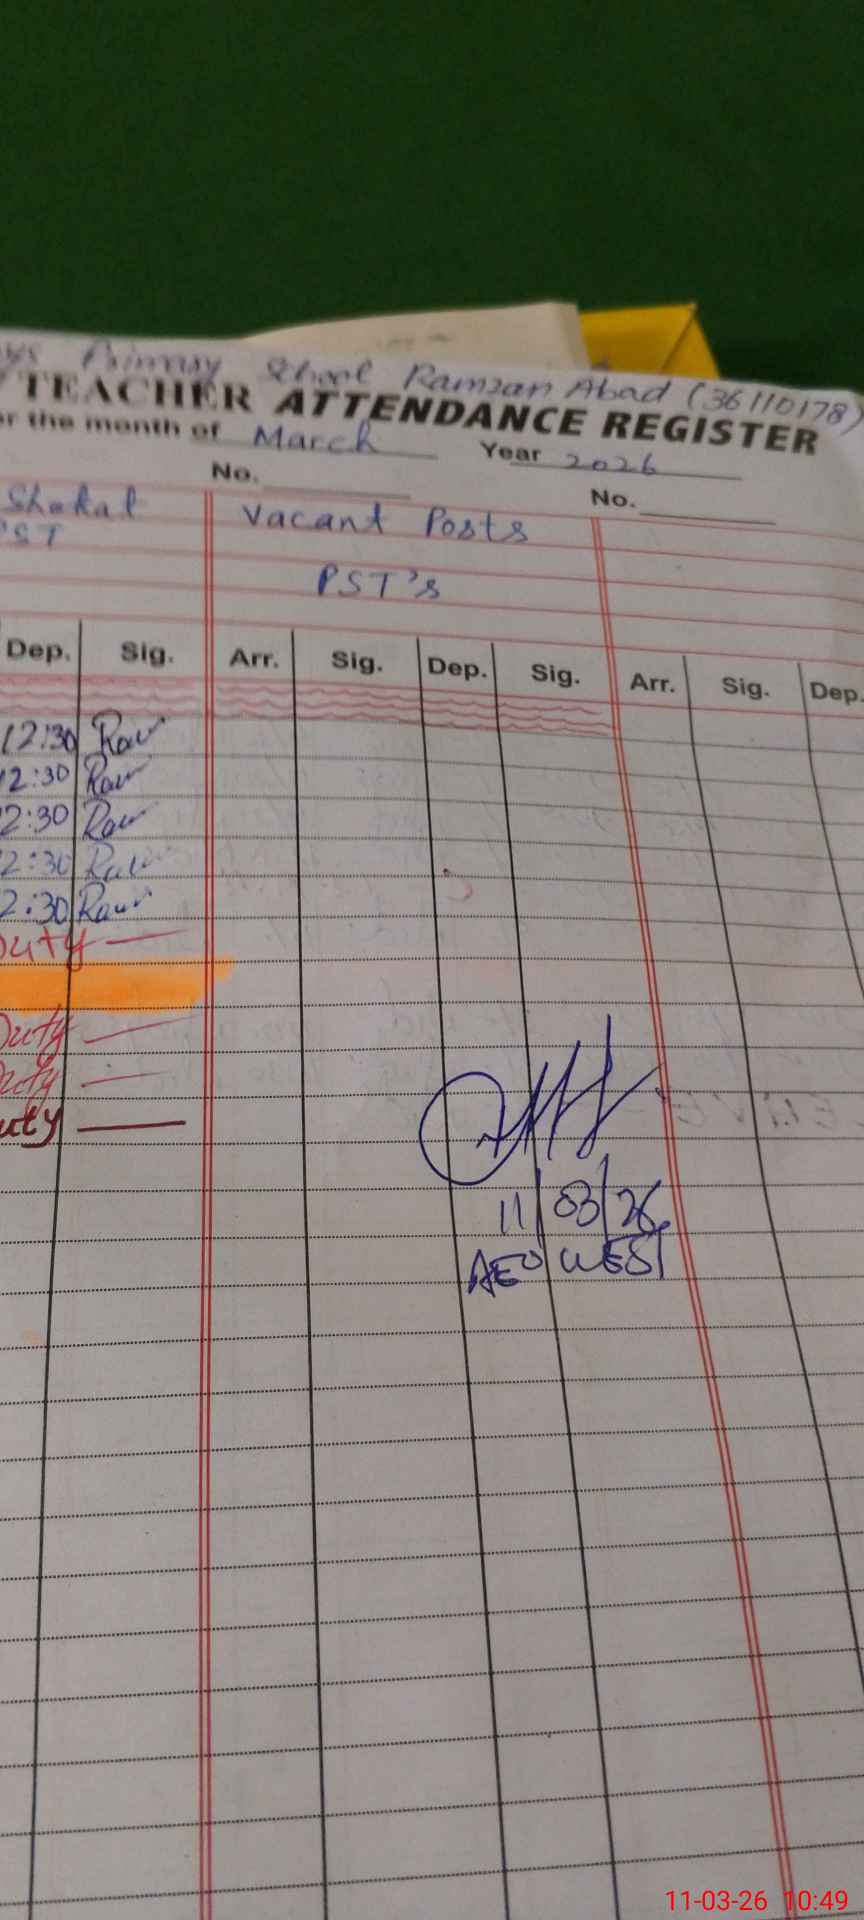 Primary School Ramzan Abad (36110178)
TEACHER ATTENDANCE REGISTER
the month of March Year 2026
No. No.
Shokat Vacant Posts
PST PST's
Dep. Sig. Arr. Sig. Dep. Sig. Arr. Sig. Dep.
12:30
12:30
2:30
2:30
2:30
Duty —
Duty —
Duty —
uty —
11/03/26
AEO WEST
11-03-26 10:49